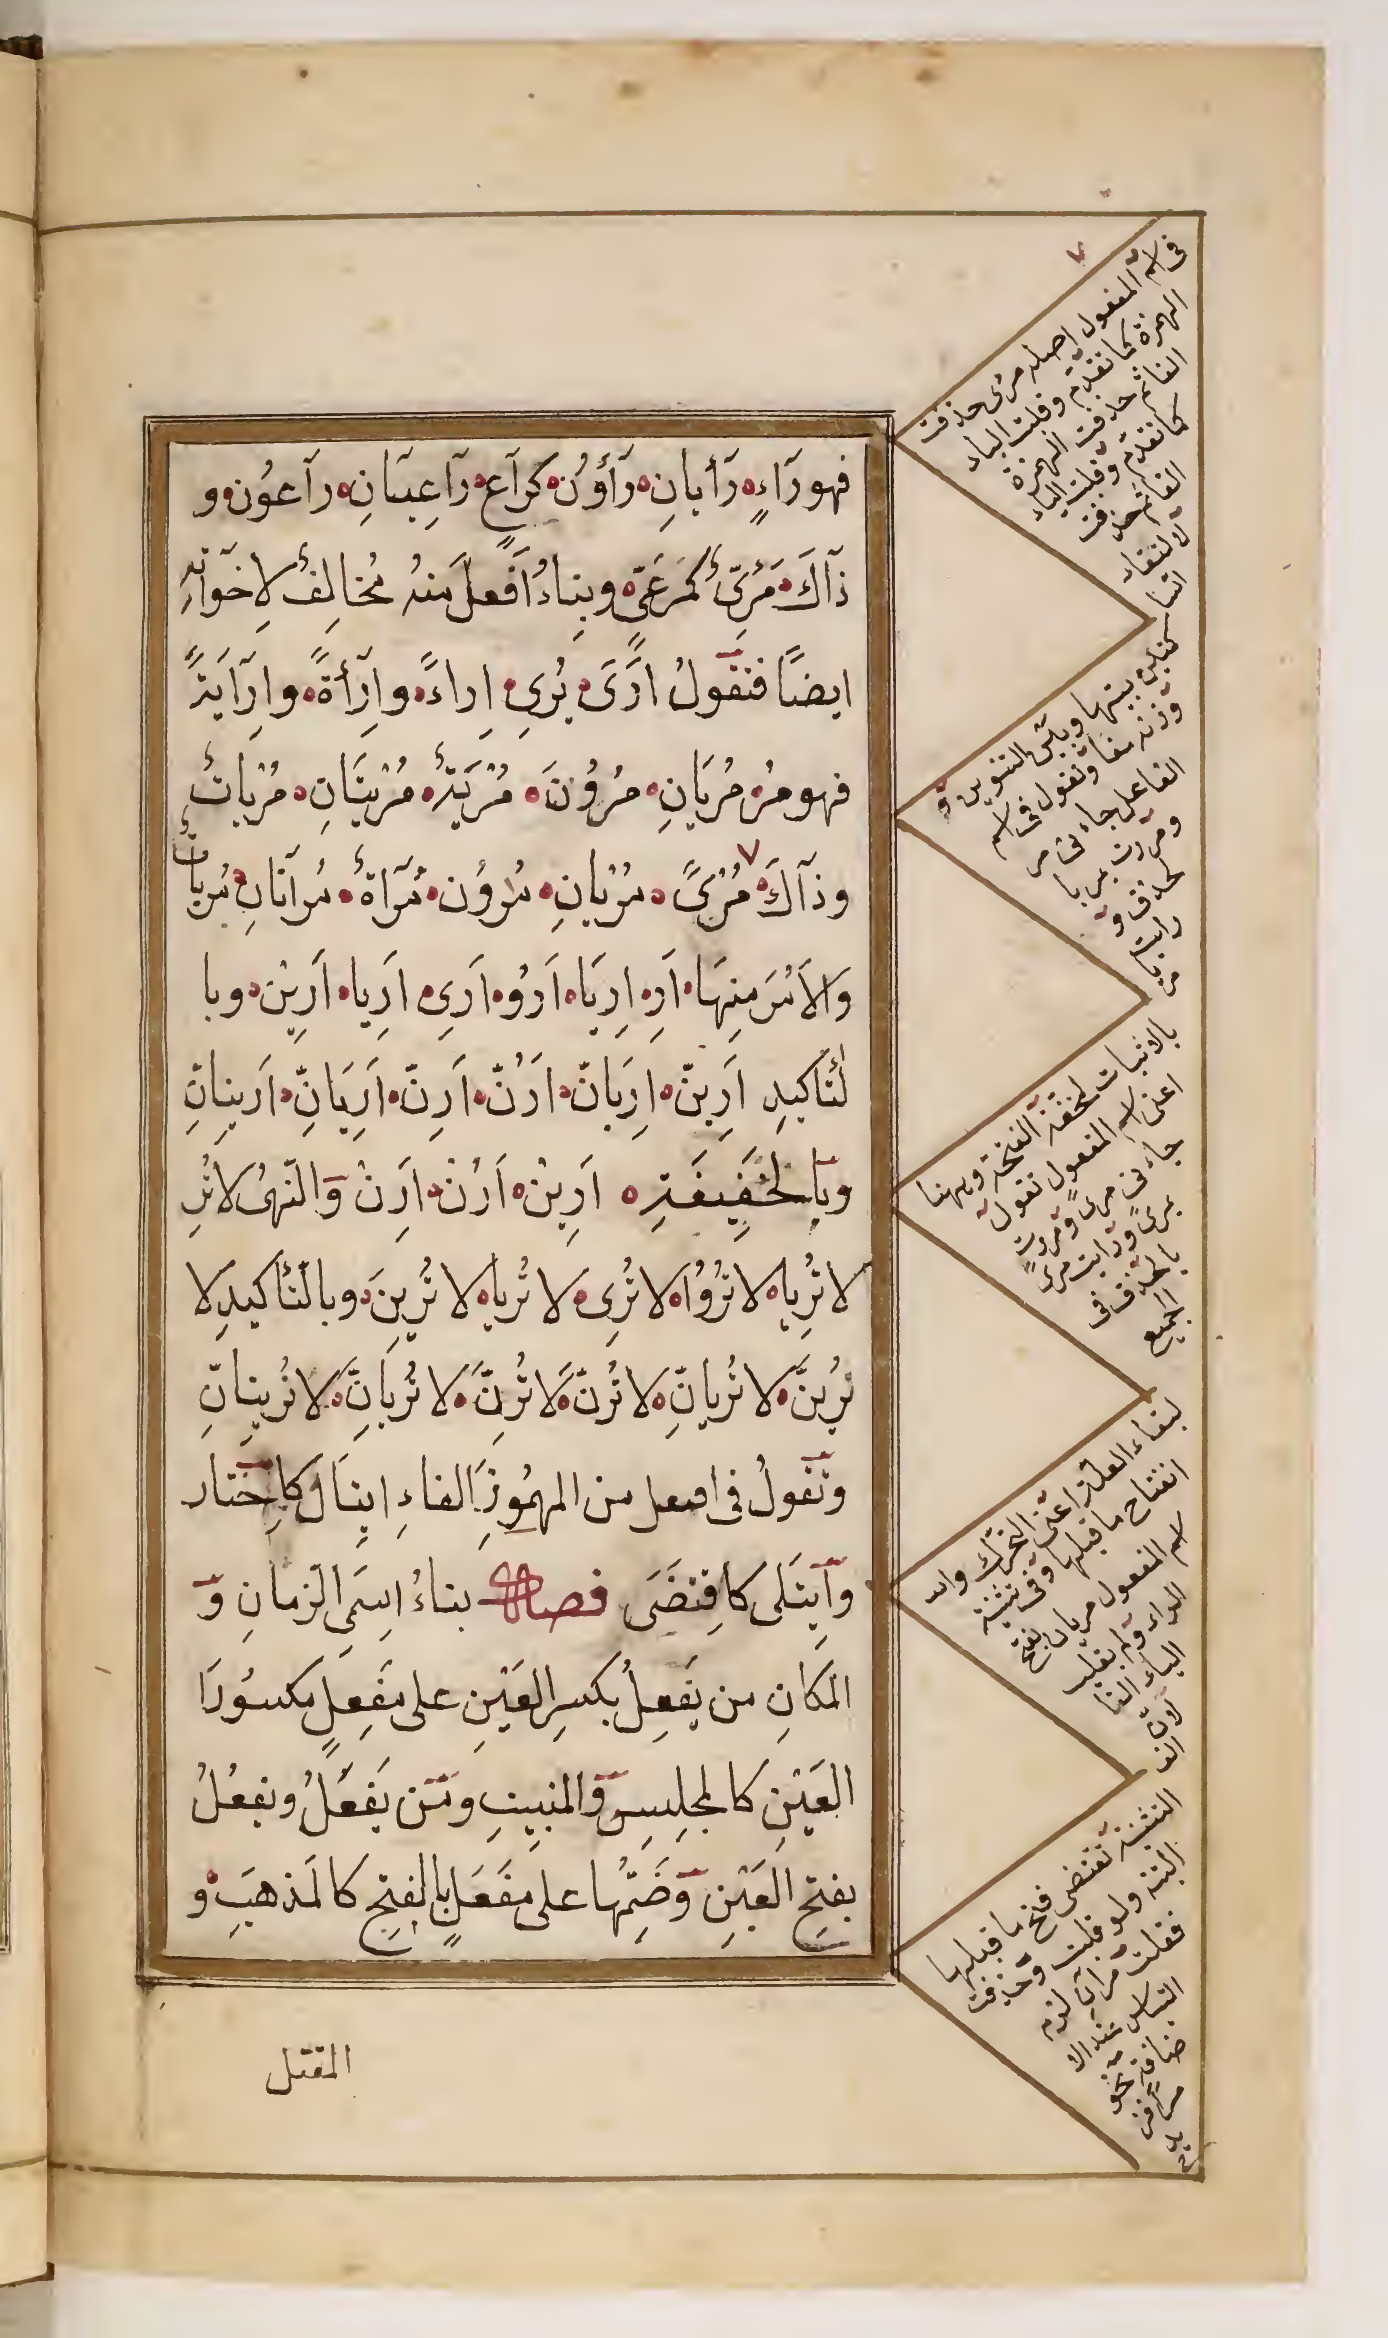 فهو رَآءٍ رَأيانِ رَآؤُنَ كَرآعٍ رَآعِيانِ رآعُون و
ذآكَ مَرْئِيٌّ كَمَرْعِيٍّ وبِناءُ اَفْعَلَ مِنهُ مُخالِفٌ لِاخَوآتِهِ
ايضًا فتَقولُ اَرَى يُرِى اِراءً وإِرآءَةً وإِرآيَةً
فهو مُرٍ مُرِيَانِ مُرُونَ مُرِيَةٌ مُرِيَتَانِ مُرِياتٌ
وذآكَ مُرًى مُرَيانِ مُرَوْنَ مُرَآةٌ مُرَآتانِ مُرَياتٌ
والاَمْرُ مِنهَا اَرِ اَرِيَا اَرُوا اَرِى اَرِيا اَرِيْن وبا
لتَّاكيدِ اَرِيَنَّ اَرِيانِّ اَرُنَّ اَرِنَّ اَرِيَانِّ اَرِينانِّ
وبالخَفِيفَةِ اَرِيَنْ اَرُنْ اَرِنْ وَالنَّهىُ لا تُرِ
لا تُرِيا لا تُرُوا لا تُرِى لا تُرِيا لا تُرِينَ وبالتَّأكيدِ لا
تُرِيَنَّ لا تُرِيانِّ لا تُرُنَّ لا تُرِنَّ لا تُرِيانِّ لا تُرِينانِّ
وتَقولُ فى افتعل من المهمُوزِ الفاءِ ايتَالَ كاخْتار
وَايتَلى كاقِتضَى فصل بناءُ اسمَىِ الزّمانِ وَ
المَكانِ من يَفعِلُ بكسرِ العَيْنِ على مَفعِلٍ مكسُورَا
العَيْنِ كالمجلِسِ وَالمَبيِتِ ومَن يَفعَلُ ويفعُلُ
بفتحِ العَيْنِ وَضَمِّها على مفَعَلٍ بالفتحِ كالمَذهبَِ و
المقتل
فى اسم المفعول اصله مرئى حذفت
الهمزة كما تقدّم وقلبت الياء
الفا ثم حذفت الهمزة
كما تقدّم وقلبت الياء
الفا ثم حذفت
لالتقاء
السا
كنين بينها وبين التنوين و
وزنه مفا وتقول فى اسم
الفاعل جاءنى مر
ومررت بمر با
لحذف و
رايت
مريا
بالاثبات لخفّة الفتحة وههنا
اعنى اسم المفعول تقول
جاءنى مرى ومررت
بمرى ورايت مرى
بالحذف فى
الجميع
لبقاء العلّة اعنى التحرّك وا
انفتاح ما قبلها وفى تثنية
اسم المفعول مريان بفتح
الراء ولم تقلب
الياء الفا
لان
الف
التثنية تقتضى فتح ما قبلها
البتة ولو قلبت وحذفت
فقلت مران لزم
التباس عند الا
ضافة نحو